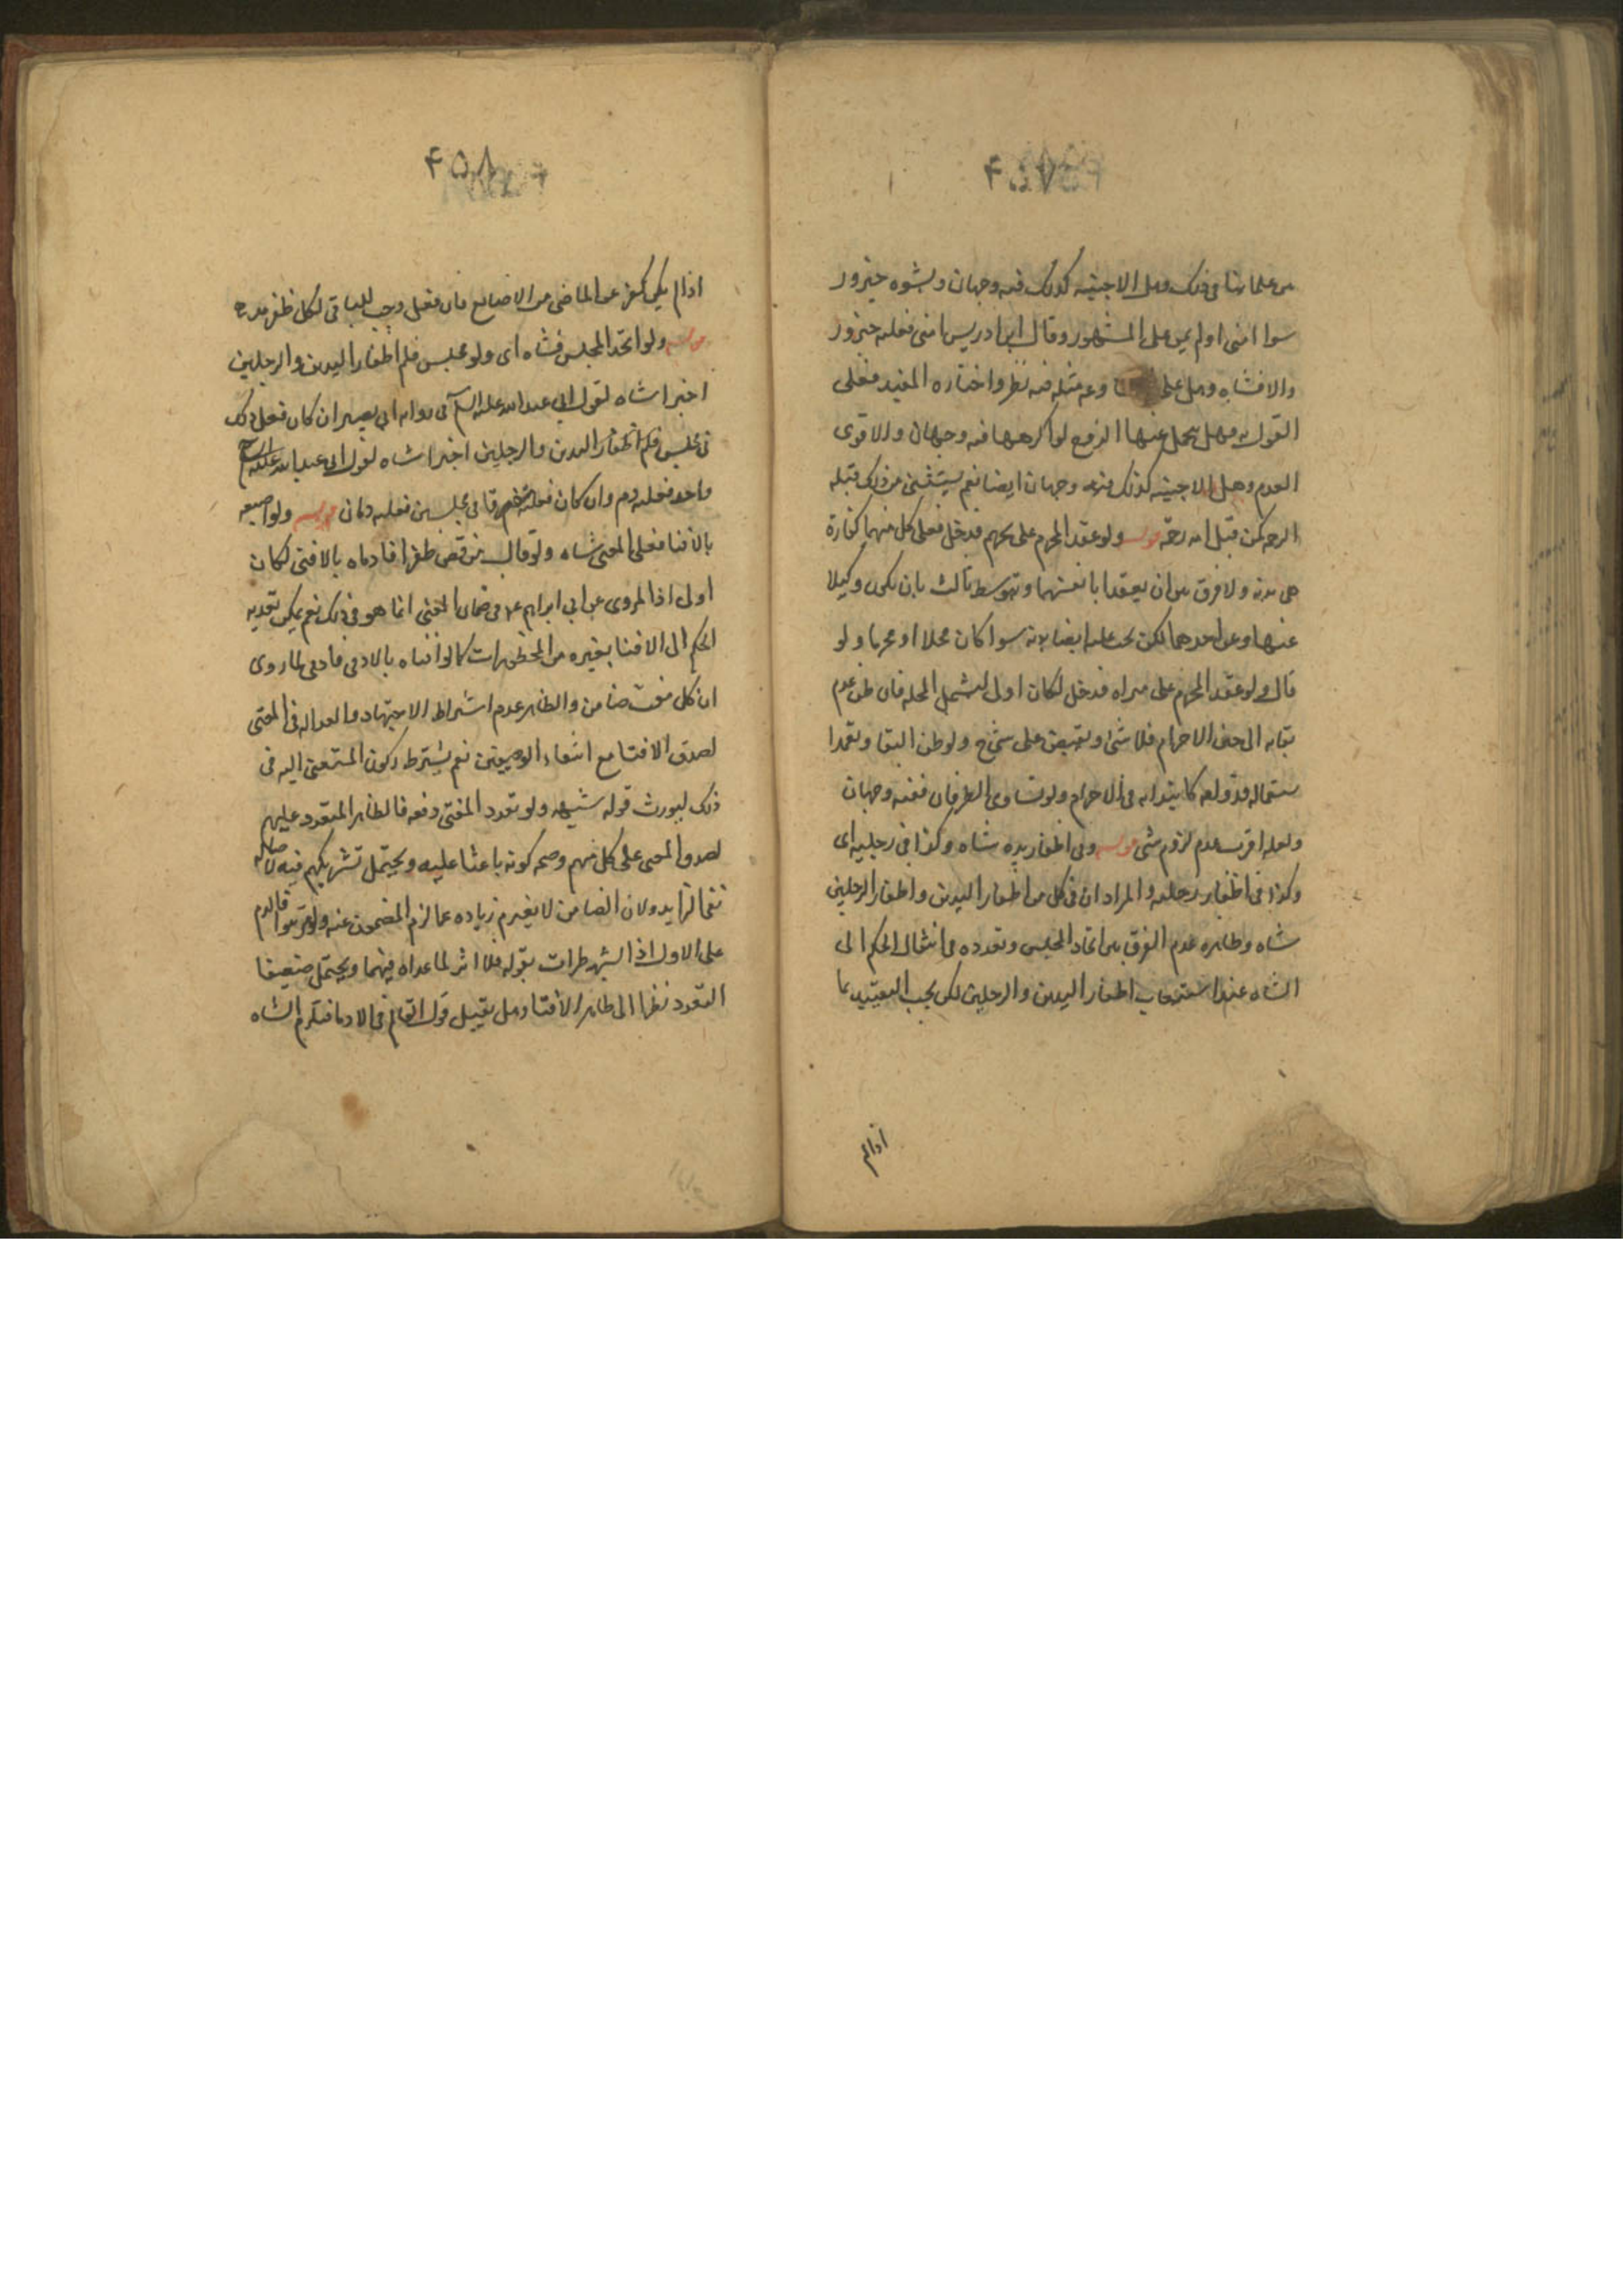 من علمائنا فى ذلك وهل الاجنبيه كذلك فيه وجهان وبشهوه جزور
سوا امنى اولم يمن على المشهور وقال ابن ادريس ان امنى فعليه جزور
والا فشاه وهل على وعن مثله فيه نظر واختاره المفيد فعلى
القول به فهل يتحمل عنها الزوج لو اكرهها فيه وجهان والاقوى
العدم وهل الاجنبيه كذلك فيه وجهان ايضا نعم يستثنى من ذلك قبله
الرحمه كمن قبل امه رحمة قوله ولو عقد المحرم على محرم فدخل فعلى كل منهما كفارة
هى بدنه ولا فرق بين ان يعقدا بانفسهما وبتوسط ثالث بان يكون وكيلا
عنهما وعن احدهما لكن يجب عليه ايضا بدنه سوا كان محلا او محرما ولو
قال ولو عقد المحرم على مراه فدخل لكان اولى ليشمل المحله فان ظن عدم
بقائه الى حين الاحرام فلا شى وبقيض على شى ح ولو ظن البقا وتعمدا
ستعماله فدوله كابتدائه فى الاحرام ولو تساوى الطرفان ففيه وجهان
ولعله اقرب عدم لزوم شى قوله وفى اظفار يديه شاه وكذا فى رجليه اى
وكذا فى اظفار رجليه والمراد ان فى كل من اظفار اليدين واظفار الرجلين
شاه وظاهره عدم الفرق بين اتحاد المجلس وتعدده فى انتقال الحكم الى
الشاه عند استيعاب اظفار اليدين والرجلين لكن يجب التقييد بما
اذالم
۴۵۸
اذا لم يكن كفر عن الماضى من الاصابع فان فعل وجب للباقى لكل ظفر مد ح
قوله ولو اتحد المجلس فشاه اى ولو مجلس قلم اظفار اليدين والرجلين
اخيرا شاه لقول ابى عبد الله عليه السلم فى روايه ابى بصير ان كان فعل ذلك
فى مجلس قلم اظفار اليدين والرجلين اخيرا شاه لقول ابى عبد الله عليه السلم
واحد فعليه دم وان كان فعله متفرقا فى مجلسين فعليه دمان قوله ولو اصبعه
بالافتا فعلى المفتى شاه ولو قال من قص ظفرا فادماه بالافتى لكان
اولى اذ المروى عن ابى ابراهيم ع فى ضمان المفتى انما هو فى ذلك نعم يمكن تعديه
الحكم الى الافتا بغيره من المحظورات كما لو افتاه بالادمى فادمى لما روى
ان كل مفت ضامن والظاهر عدم اشتراط الاجتهاد والعداله فى المفتى
لصدق الافتا مع انتفاء الوصفين نعم يشترط ركون المستفتى اليه فى
ذلك ليورث قوله شبهه ولو تعدد المفتى دفعه فالظاهر التعدد عليهم
لصدق المفتى على كل منهم وصحه كونه باعثا عليه ويحتمل تشريكهم فيه لاصاله
نفى الزايد ولان الضامن لا يغرم زياده عما لزم المضمون عنه ولو ترتبوا فالدم
على الاول اذ الشهر طرات بقوله فلا اثر لما عداه فيهما ويحتمل ضعيفا
التعدد نظرا الى ظاهر الافتا وهل يقبل قول القالم فى الادما فتلزم الشاه